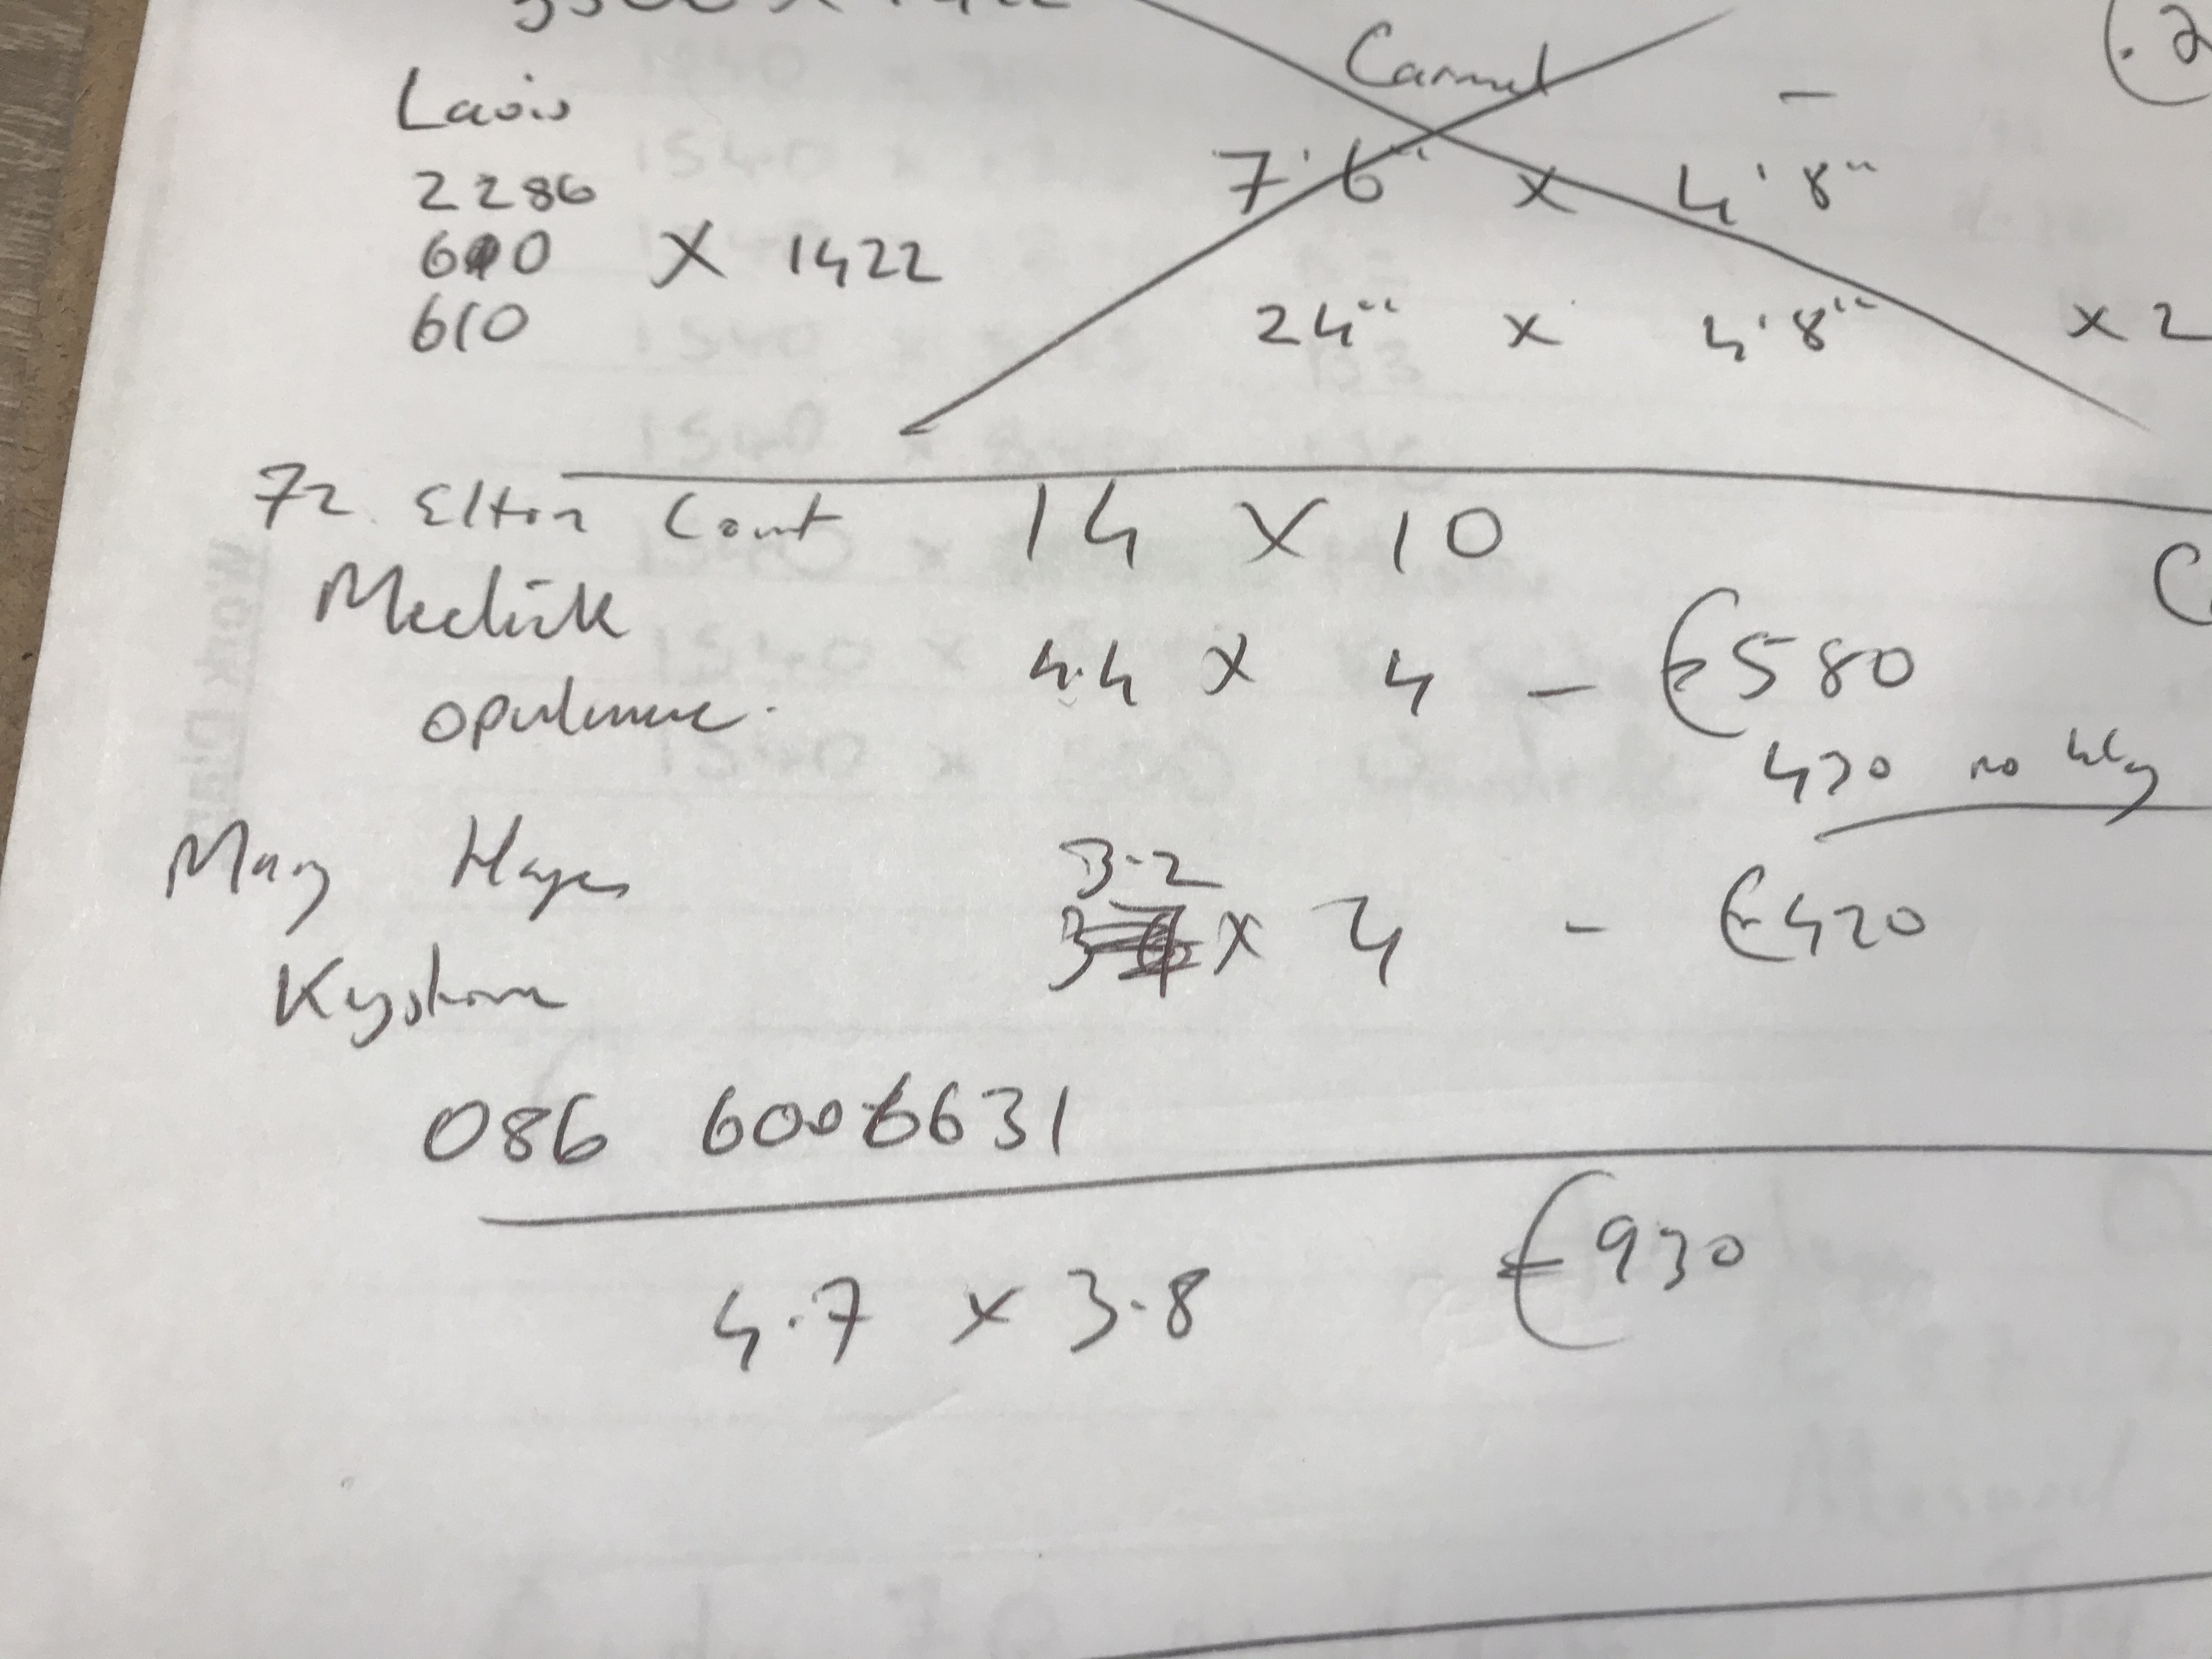 3300 x 1422
Carmel
(.2
Laois
2286
7'6" x 4'8"
610 X 1422
610
24" x 4'8" x 2
72 Elton Court 14 X 10
C
4.4 x 4 - €580
opulence.
430 no
Mary Hayes 3.2
x 4 - €420
Keystone
086 6006631
€930
4.7 x 3.8